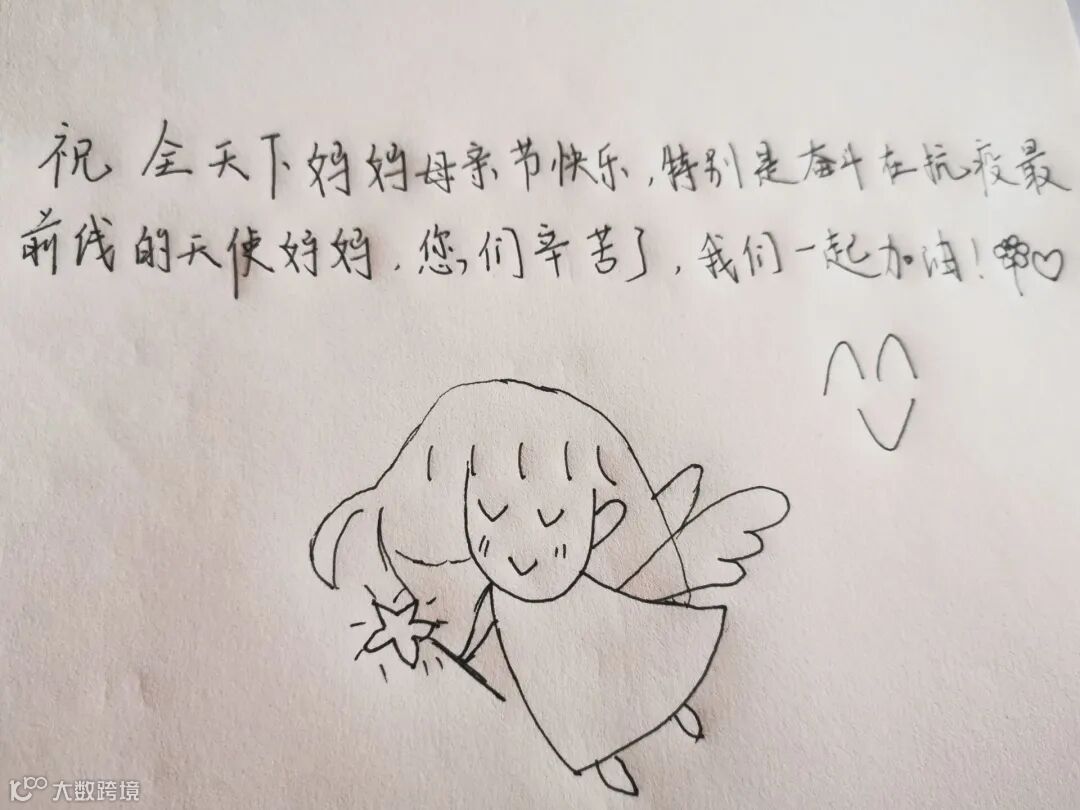 祝全天下妈妈母亲节快乐,特别是奋斗在抗疫最
前线的天使妈妈,您们辛苦了,我们一起加油!
大数跨境